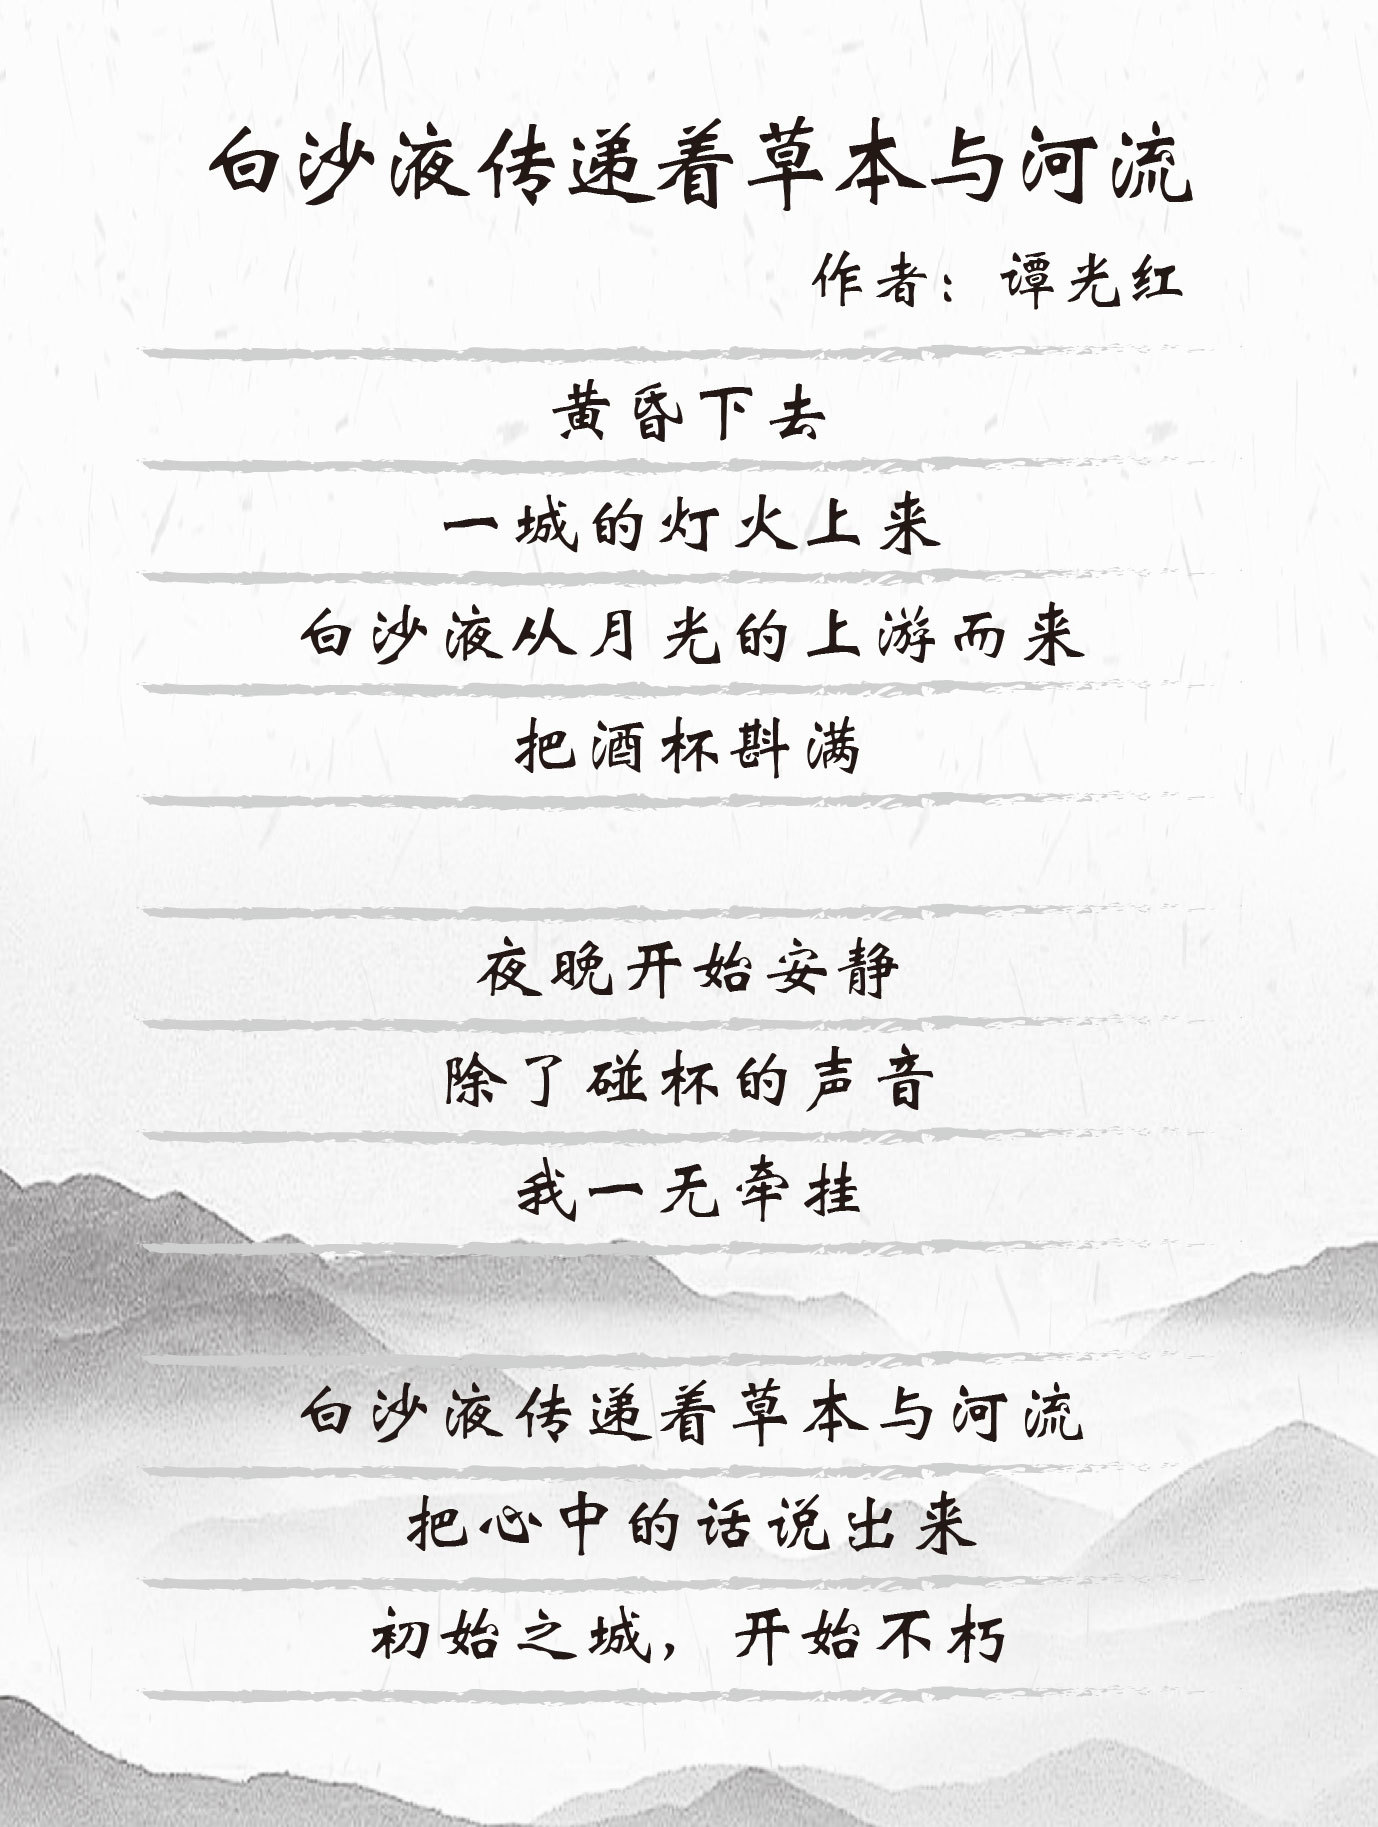 白沙液传递着草本与河流
作者：谭光红
黄昏下去
一城的灯火上来
白沙液从月光的上游而来
把酒杯斟满
夜晚开始安静
除了碰杯的声音
我一无牵挂
白沙液传递着草本与河流
把心中的话说出来
初始之城，开始不朽